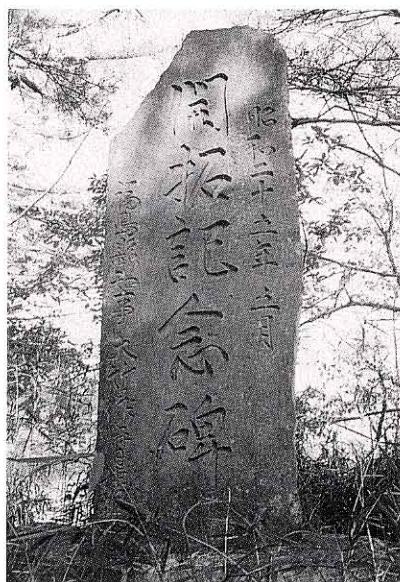 昭和二十五年五月
開拓記念碑
福島縣知事大竹作摩